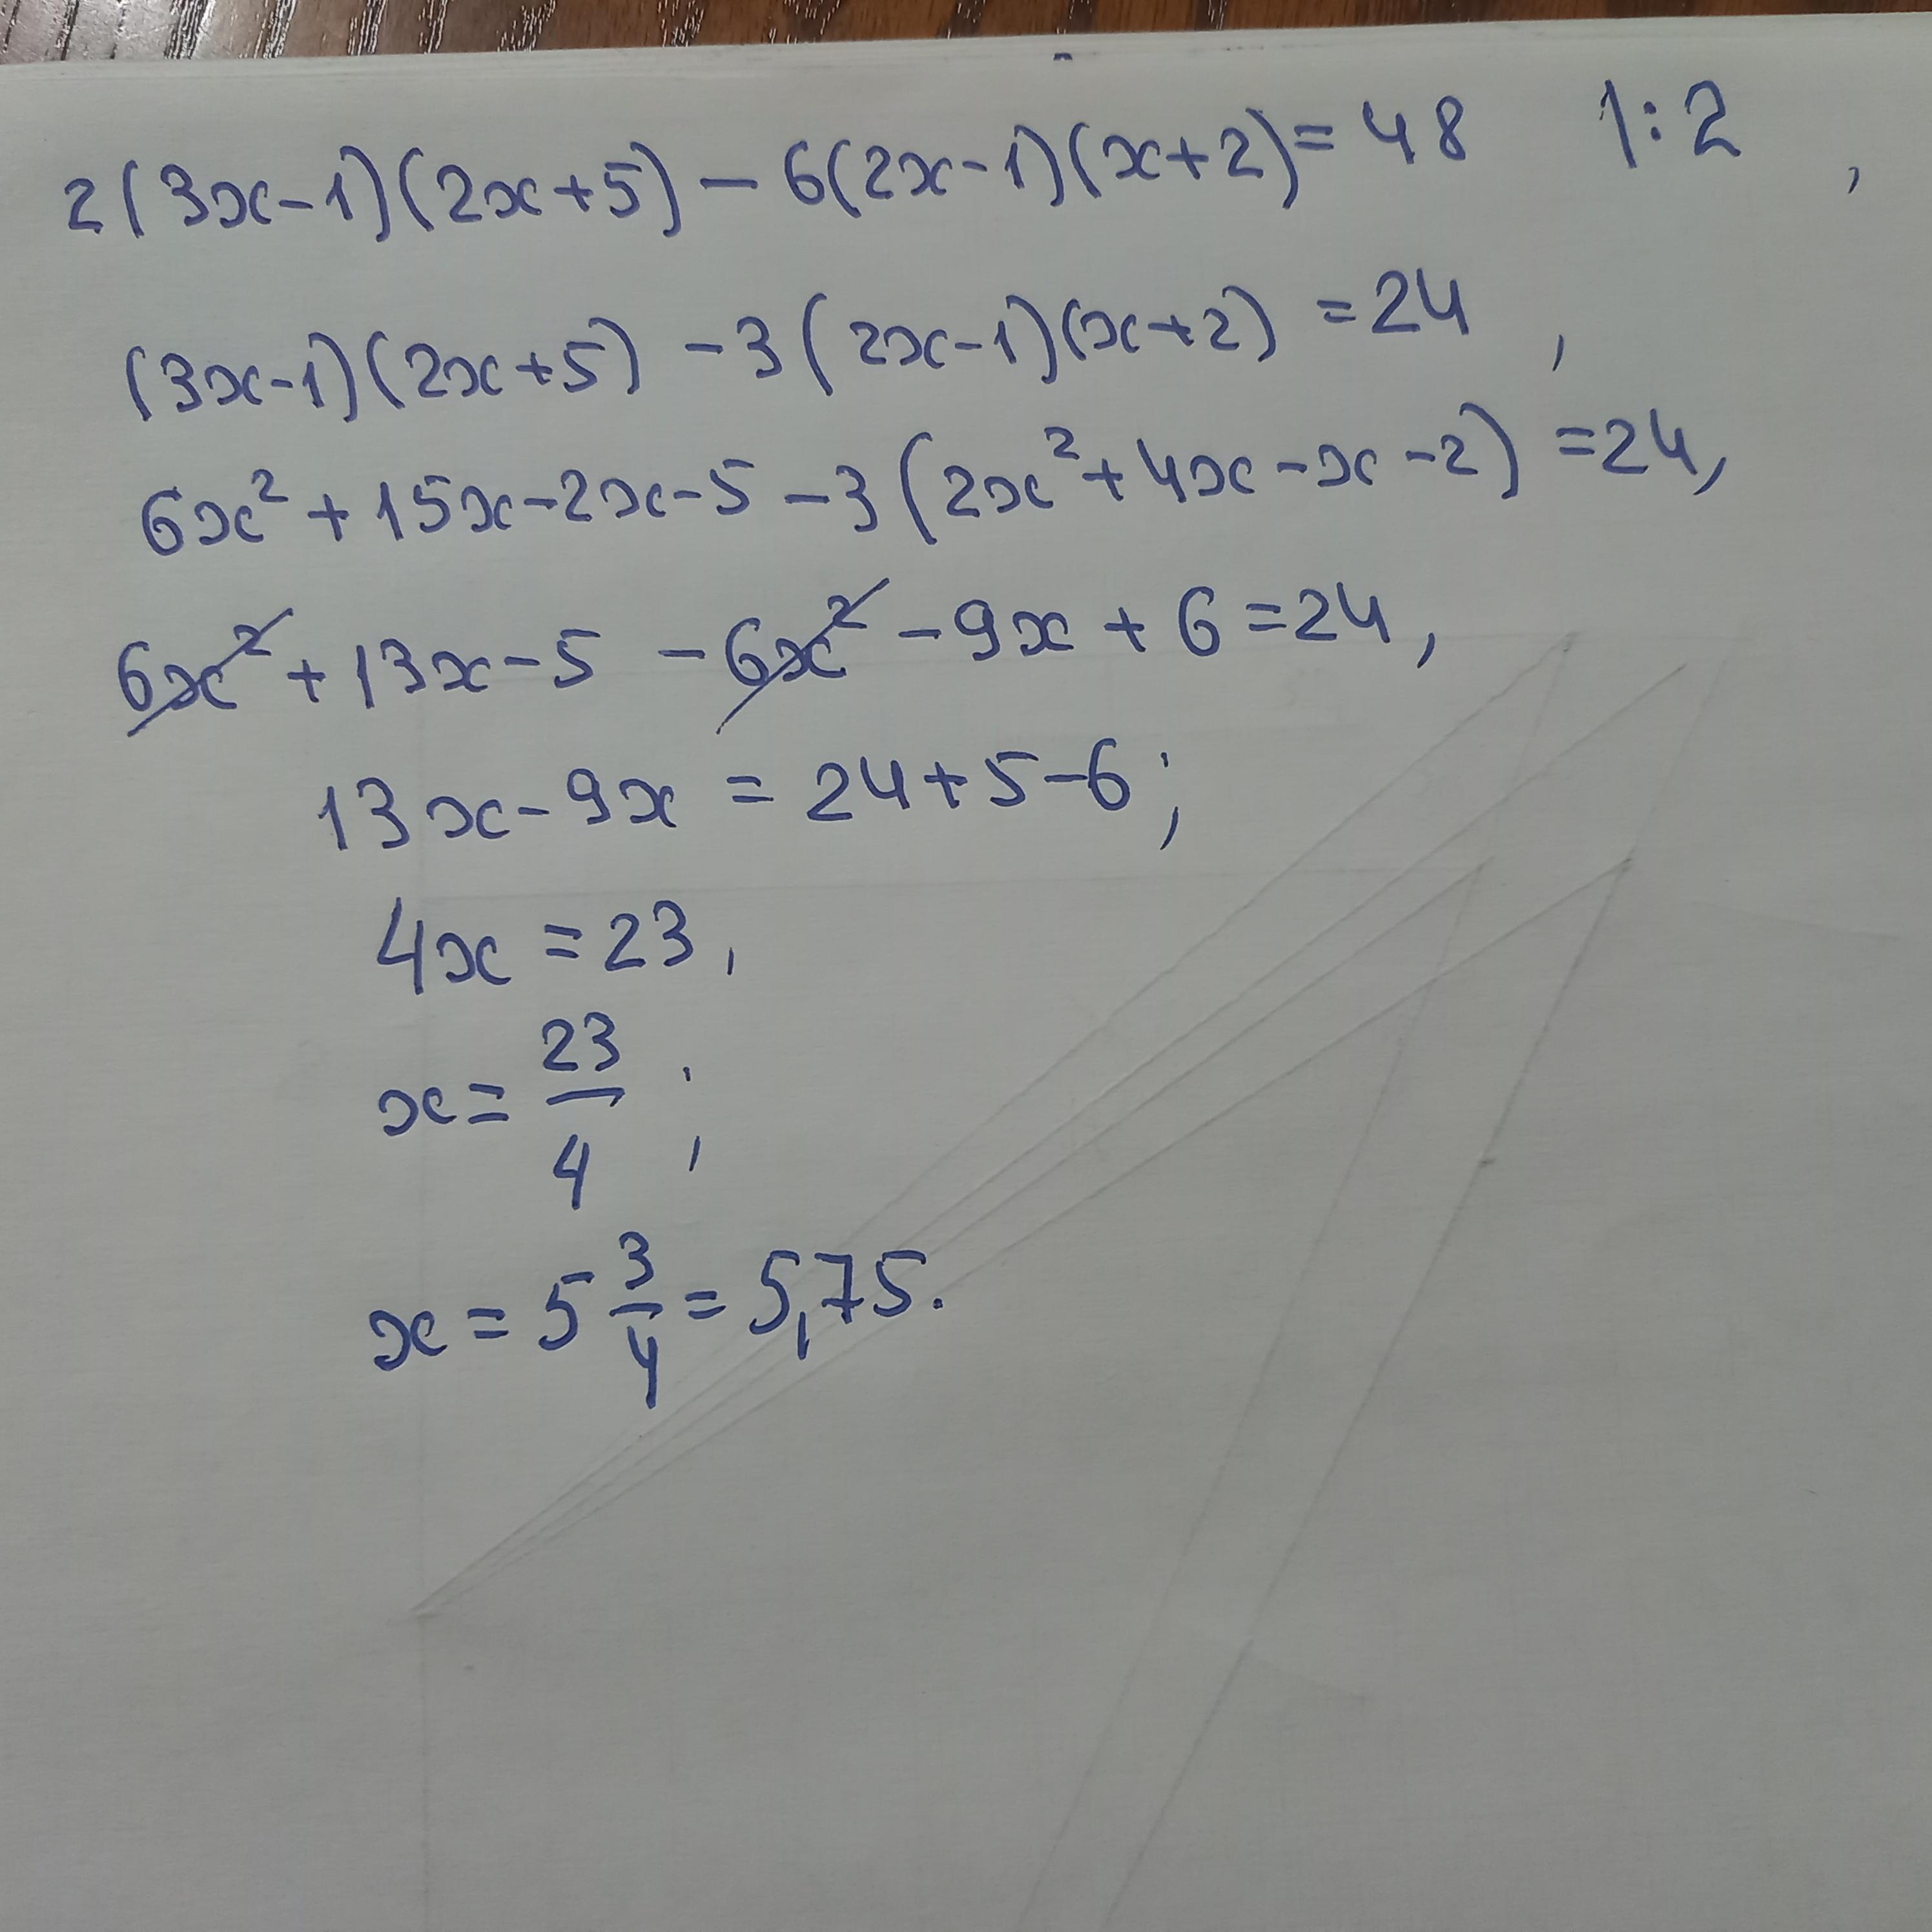 2(3x-1)(2x+5) - 6(2x-1)(x+2) = 48 |:2,
(3x-1)(2x+5) - 3(2x-1)(x+2) = 24,
6x² + 15x - 2x - 5 - 3(2x² + 4x - x - 2) = 24,
6x² + 13x - 5 - 6x² - 9x + 6 = 24,
13x - 9x = 24 + 5 - 6;
4x = 23,
x = 23/4;
x = 5 3/4 = 5,75.